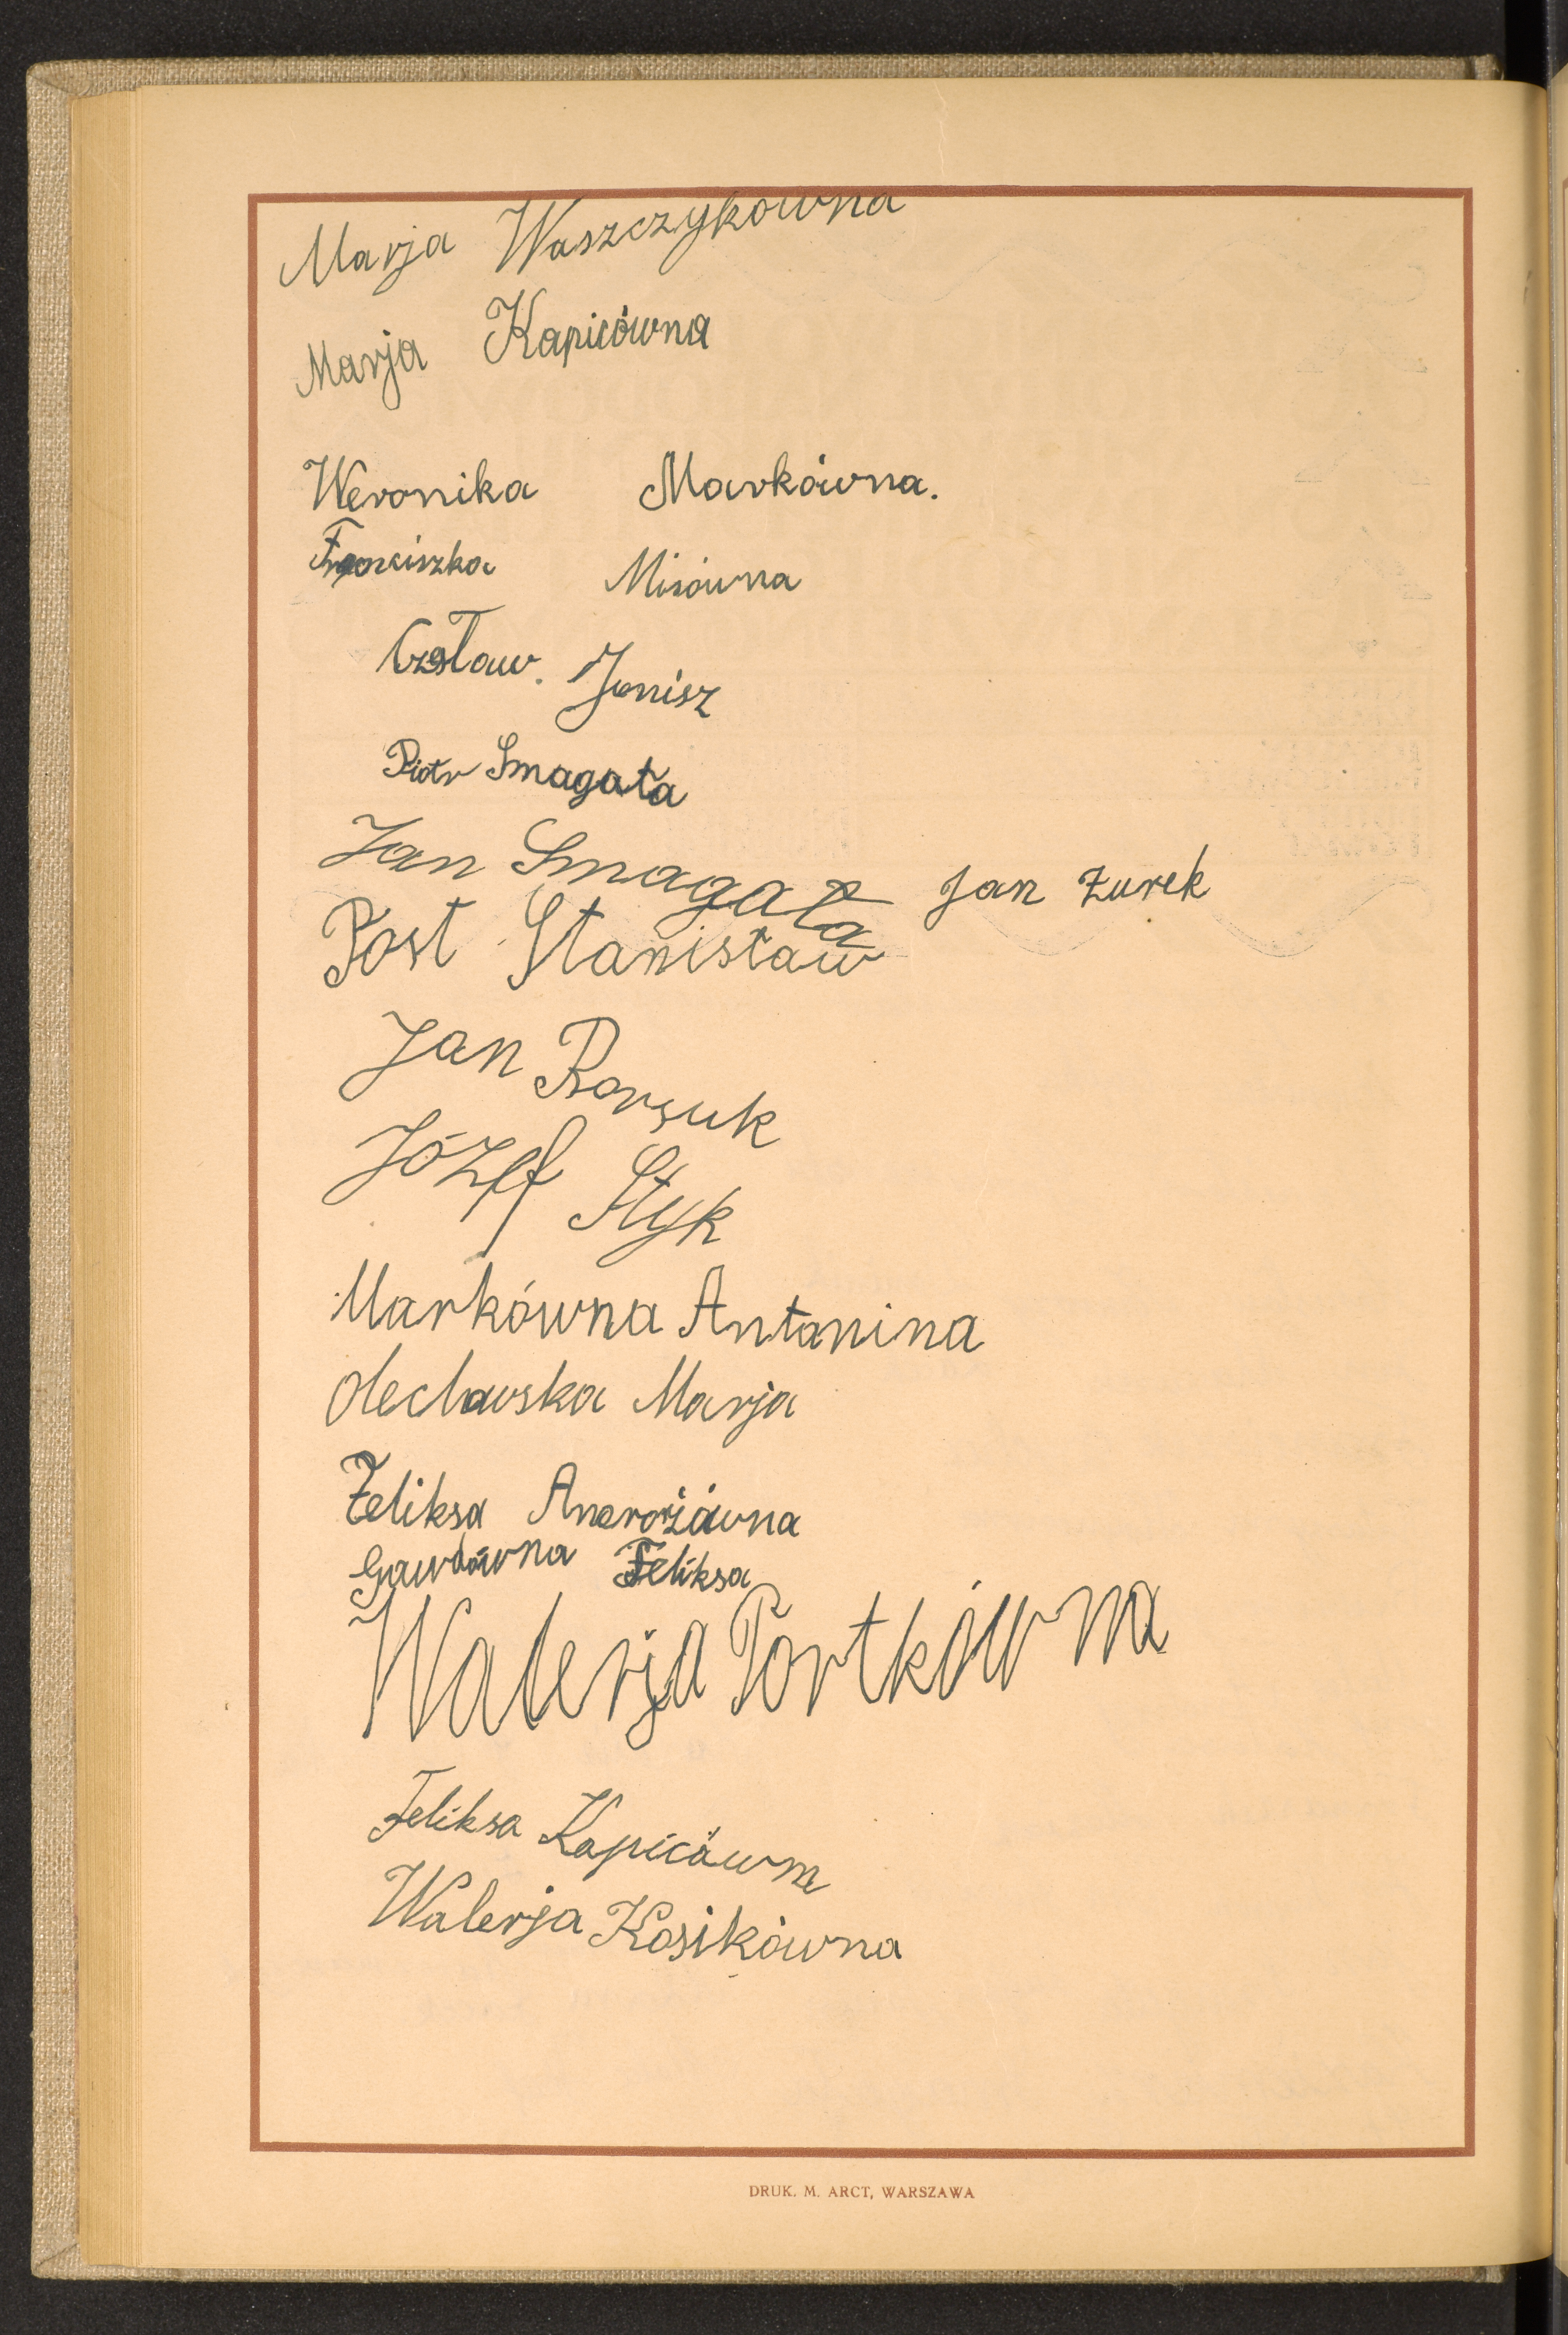 Marja Waszczykówna
Marja Kapicówna
Weronika Markówna.
Franciszka Misówna
Czesław. Jonisz
Piotr Smagała
Jan Smagała Jan Żurek
Post Stanisław
Jan Borsuk
Józef Styk
Markówna Antonina
Olechowska Marja
Feliksa
Gawdówna Feliksa
Walerja Portkówna
Feliksa Kapicówna
Walerja Kosikówna
DRUK. M. ARCT, WARSZAWA